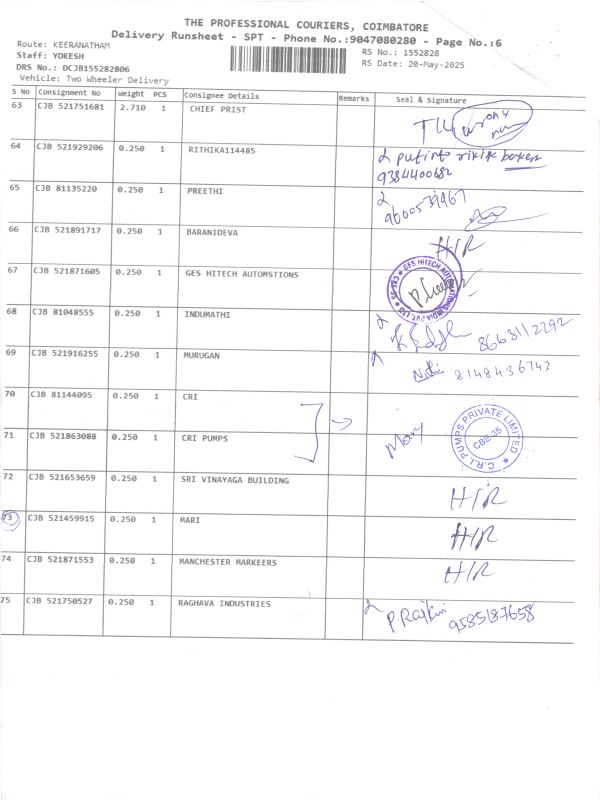 THE PROFESSIONAL COURIERS, COIMBATORE
Delivery Runsheet - SPT - Phone No.:9047080280 - Page No.:6
Route: KEERANATHAM
Staff: YOKESH
DRS No.: DCJB155282806
Vehicle: Two Wheeler Delivery
RS No.: 1552828
RS Date: 20-May-2025
S No Consignment No Weight PCS Consignee Details Remarks Seal & Signature
63 CJB 521751681 2.710 1 CHIEF PRIST
64 CJB 521929206 0.250 1 RITHIKA114485
9384400682
65 CJB 81135220 0.250 1 PREETHI
9600539967
66 CJB 521891717 0.250 1 BARANIDEVA H/R
67 CJB 521871605 0.250 1 GES HITECH AUTOMSTIONS
68 CJB 81048555 0.250 1 INDUMATHI 8668112292
69 CJB 521916255 0.250 1 MURUGAN 8148436743
70 CJB 81144095 0.250 1 CRI
71 CJB 521863088 0.250 1 CRI PUMPS Mary C.R.I. PUMPS PRIVATE LIMITED CBE-35
72 CJB 521653659 0.250 1 SRI VINAYAGA BUILDING H/R
73 CJB 521459915 0.250 1 MARI H/R
74 CJB 521871553 0.250 1 MANCHESTER MARKEERS H/R
75 CJB 521750527 0.250 1 RAGHAVA INDUSTRIES 9585187658